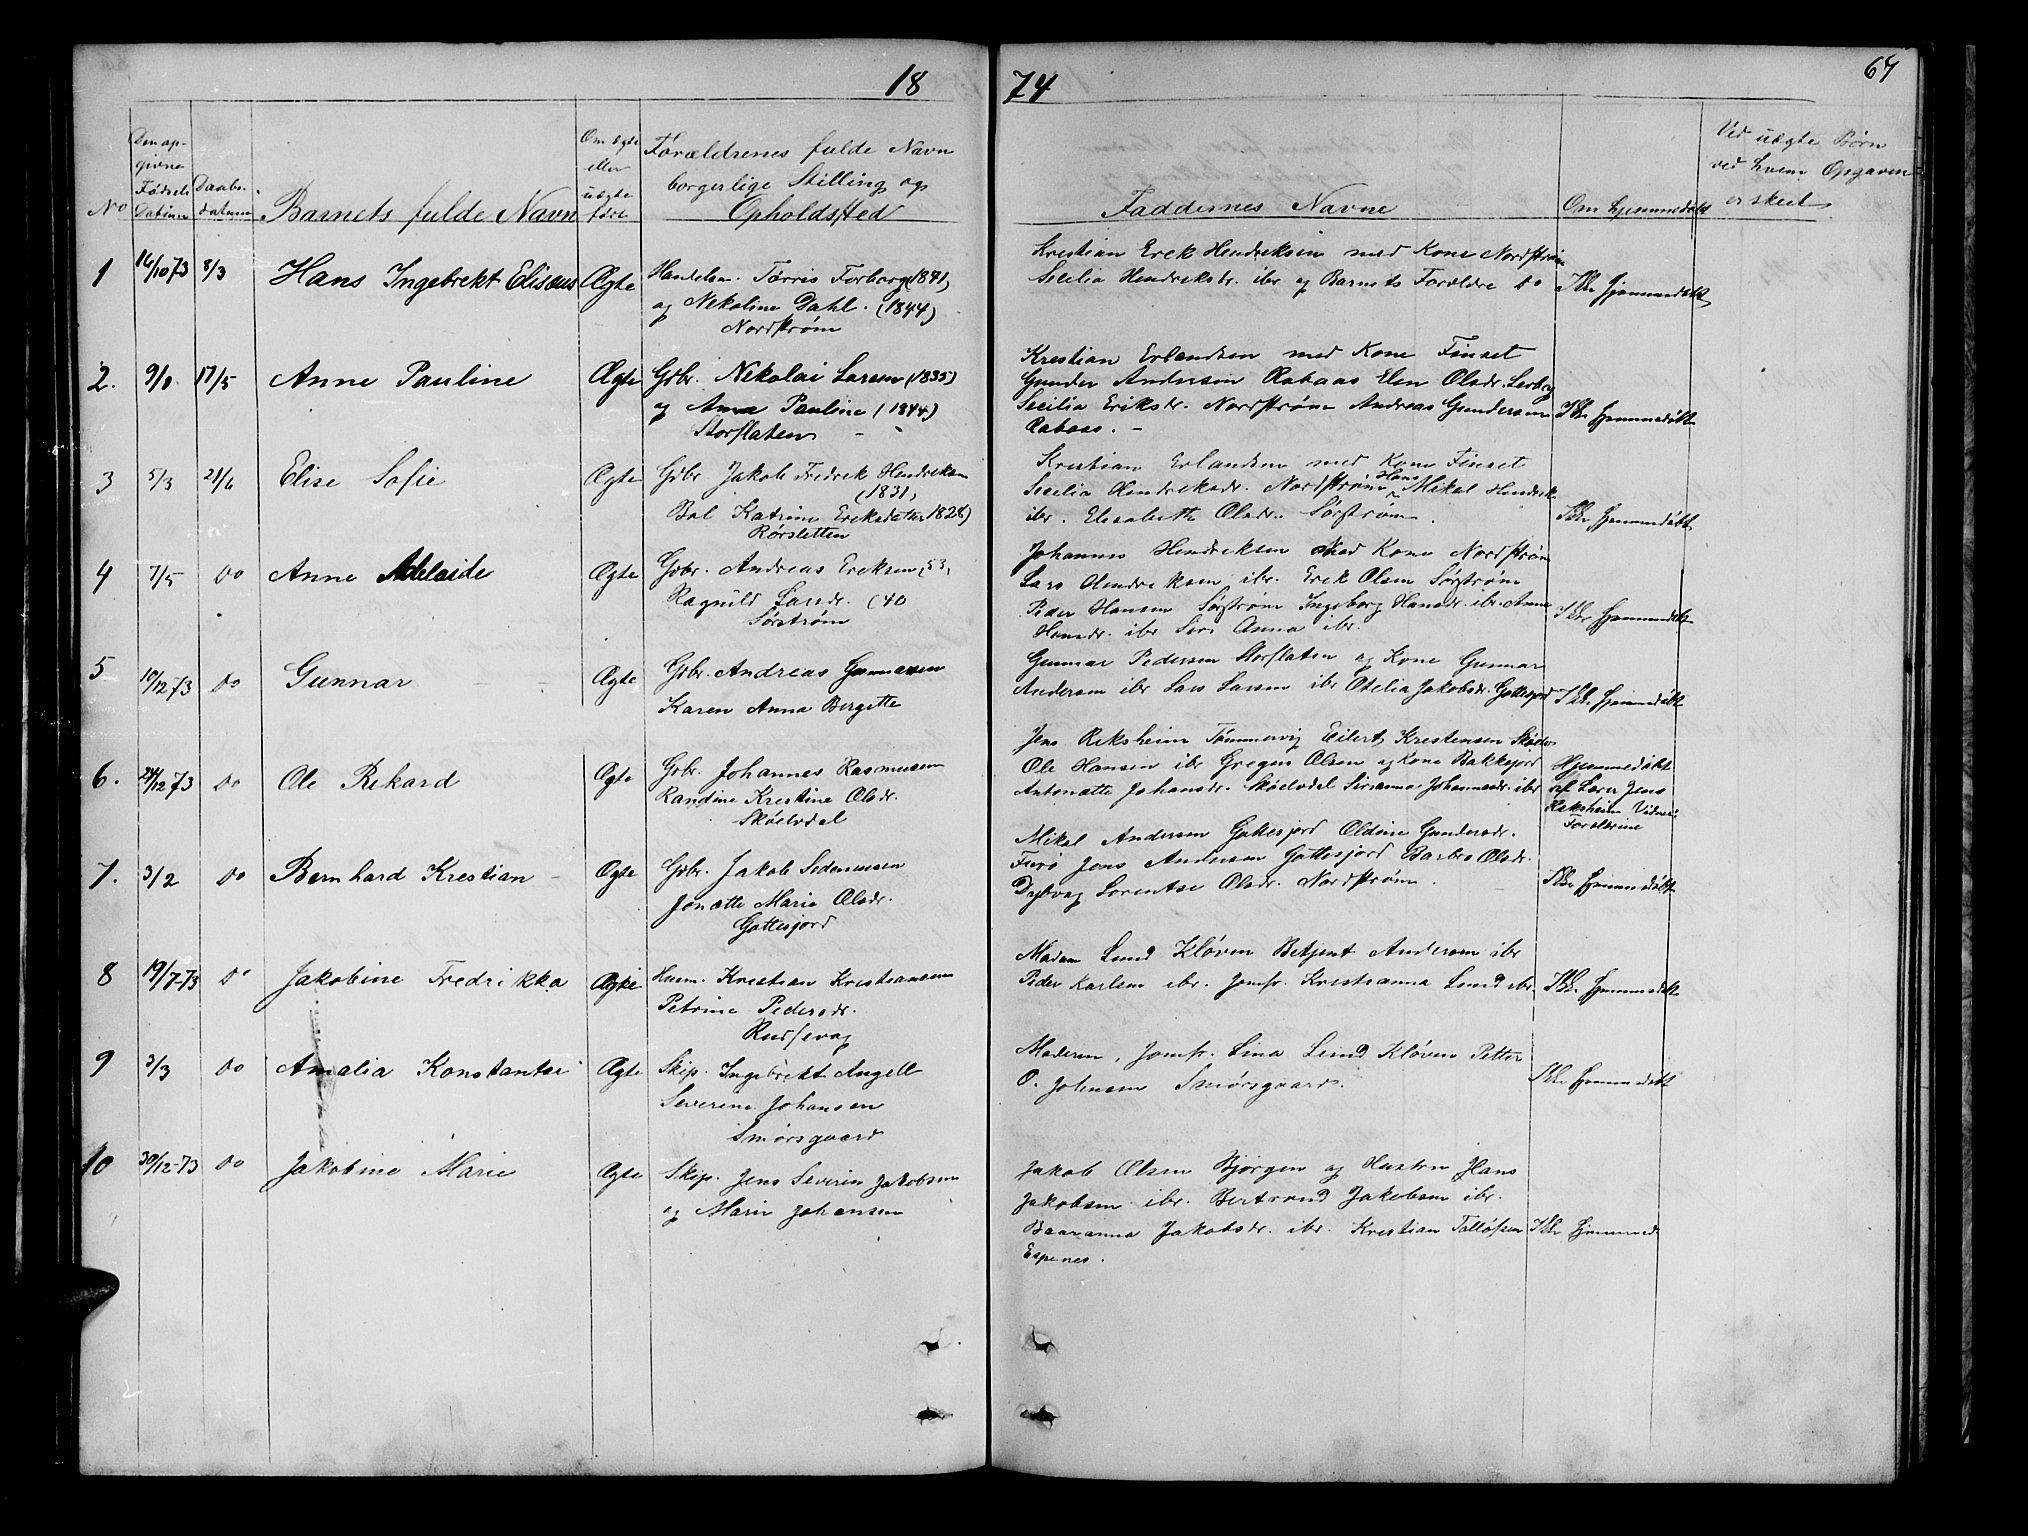 18
74
67
No
Den op-
givne
Fødsels
Datum
Daabs-
datum
Barnets fulde Navn
Om ægte
eller
uægte
født
Forældrenes fulde Navn
borgerlige Stilling og
Opholdssted
Faddernes Navne
Om hjemmedøbt
Ved uægte Børn
ved hvem Opgaven
er skeet
1 14/10 73 8/3 Hans Ingebrekt Elisæus Ægte
Handelsm. Tørris Forborg (1841)
og Nekoline Dahl. (1844)
Nordstrøm
Krestian Erek Hendreksen med Kone Nordstrøm
Secilia Hendreksdr. ibr og Barnets Forældre do
Ikke hjemmedøbt
2. 17/5 Anne Pauline Ægte
Gbr. Nekolai Larsen (1835)
og Anna Pauline (1844)
Storflaten
Krestian Erlandsen med Kone Finset
Gunder Andersen Rabaas Elen Olsdr.
Secilia Eriksdr. Nordstrøm Andreas Gundersen
Rabaas. -
Ikke hjemmedøbt
3 5/3 21/6 Elise Sofie Ægte
Gbr Jakob Fredrek Hendreksen
(1831)
Bol Katrine Ereksdatter 1828)
Rørsletten
Krestian Erlandsen med Kone Finset
Secilia Hendreksdr. Nordstrøm Hans Mikal Hendrek
ibr. Elisabette Olsdr. Sørstrøm.
Ikke hjemmedøbt
4 7/5 Do Anne Adelaide Ægte
Gbr. Andreas Ereksen, 53,
Ragnild Larsdr. (40
Sørstrøm
Johannes Hendreksen med Kone Nordstrøm
Lars Hendreksen ibr. Erek Olsen Sørstrøm
Peder Hansen Sørstrøm Ingeborg Hansdr. ibr. Anne
Hansdr. ibr Anna ibr.
Ikke hjemmedøbt
5 10/12 73 Do Gunnar Ægte
Gbr. Andreas Gunnarsen
Karen Anna Bergette
Gunnar Pedersen Storflaten og Kone Gunnar
Andersen ibr Lars Larsen ibr Otelia Jakobsdr. Gottesjord
Ikke hjemmedøbt
6. 24/12 73 Do Ole Rikard Ægte
Gbr. Johannes Rasmusen
Randine Krestine Olsdr.
Skøelvdal
Jens Reksheim Tømmervig Eilert Krestensen
Ole Hansen ibr Gregus Olsen og Kone Bakkejord
Antonætte Johansdr. Skøelvdal Johannesdr. ibr
Hjemmedøbt
af Lærer Jens
Reksheim
Forældrene
7. 3/2 Do Bernhard Krestian Ægte
Gbr. Jakob
Jonætte Marie Olsdr.
Gottesjord
Mikal Andersen Gottesjord Oldine Gundersdr.
Furø Jens Andersen Gottesjord Barbro Olsdr.
Dybvag Lorentse Olsdr. Nordstrøm.
Ikke hjemmedøbt
8 19/7-73 Do Jakobine Fredrikka Ægte
Husm. Krestian Kristiansen
Petrine Pedersdr.
Madam Lund Kløven Betjent Andersen ibr
Peder Karlsen ibr. Jomfr. Kristianna Lund ibr
Ikke hjemmedøbt
9 3/3 Do Amalia Konstantse Ægte
Skip. Ingebrekt Angell
Severine Johansen
Smørsgaard
Moderen, Jomfr. Lina Lund Kløven Petter
O. Johnsen Smørsgaard.
Ikke hjemmedøbt
10 30/12-73 Do Jakobine Marie Ægte
Skip. Jens Severin Jakobsen
og Marie Johansen
Jakob Olsen Bjørgen og Hustru Hans
Jakobsen ibr. Bertrand Jakobsen ibr.
Jakobsdr. ibr. Kristian
Espenes.
Ikke hjemmed.